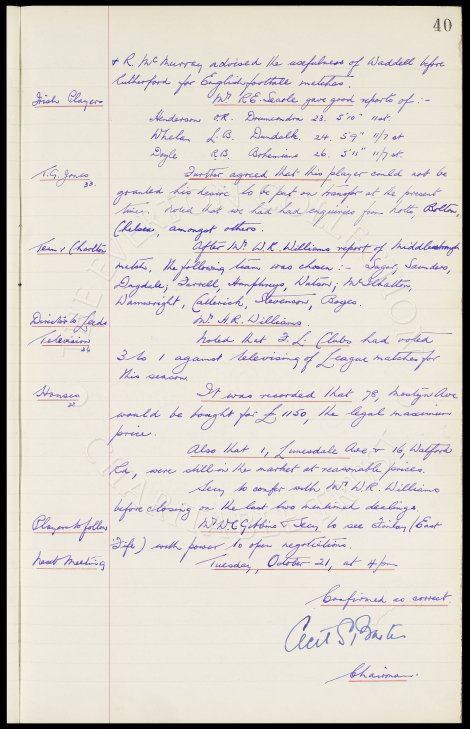 40
+ R. McMurray advised the usefulness of Waddell before
Rutherford for English football matches.
Irish Players
Mr. R.E. Searle gave good reports of :-
Henderson O.R. Drumcondra 23. 5'10" 11 st.
Whelan L.B. Dundalk. 24. 5'9" 11/7 st
Doyle R.B. Bohemians 26. 5'11" 11/7 st.
T.G. Jones
33.
Further agreed that this player could not be
granted his desire to be put on transfer at the present
time. Noted that we had had enquiries from Notts, Bolton,
Chelsea, amongst others.
Team v Charlton
After Mr. W.R. Williams report of Middlesbrough
match, the following team was chosen :- Sagar, Saunders,
Dugdale; Farrell, Humphreys, Watson; McIlhatton,
Wainwright, Catterick, Stevenson, Boyes.
Director to Leeds
Mr. H.R. Williams.
Television
36
Noted that F.L. Clubs had voted
3 to 1 against televising of League matches for
this season.
Houses
It was recorded that 78, Mostyn Ave
would be bought for £1150, the legal maximum
price.
Also that 1, Lunesdale Ave + 16, Walford
Rd, were still in the market at reasonable prices.
Secy to confer with Mr. W.R. Williams
before closing on the last two mentioned dealings.
Player to follow
Mr. W.C. Gibbins & Secy to see Finlay (East
Fife) with power to open negotiations.
Next Meeting
Tuesday, October 21, at 4 pm
Confirmed as correct
Cecil S. Baxter
Chairman.